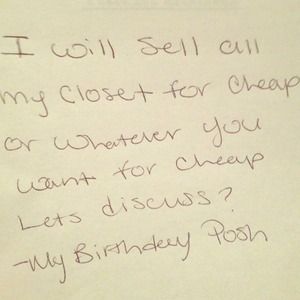 I will sell all
my closet for cheap
or whatever you
want for cheap
Lets discuss?
-My Birthday Posh